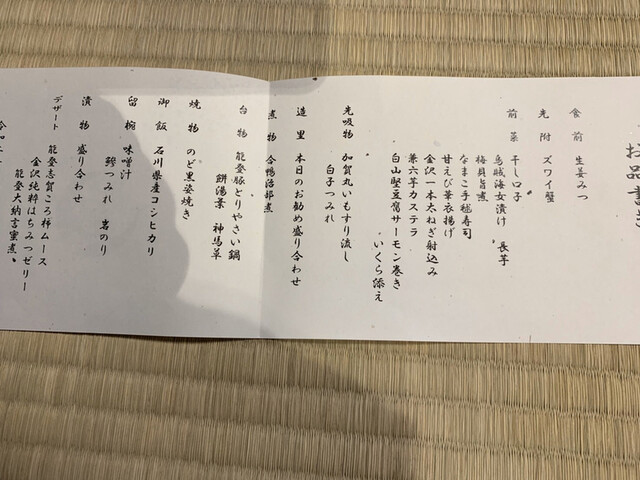 お品書き
食前 生姜みつ
先附 ズワイ蟹
前菜 干し口子
烏賊海女漬け 長芋
梅貝旨煮
なまこ手毬寿司
甘えび華衣揚げ
金沢一本太ねぎ射込み
兼六芋カステラ
白山堅豆腐サーモン巻き
いくら添え
先吸物 加賀丸いもすり流し
白子つみれ
造里 本日のお勧め盛り合わせ
煮物 合鴨治部煮
台物 能登豚とりやさい鍋
餅湯葉 神馬草
焼物 のど黒姿焼き
御飯 石川県産コシヒカリ
留椀 味噌汁
鯵つみれ 岩のり
漬物 盛り合わせ
デザート 能登志賀ころ柿ムース
金沢純粋はちみつゼリー
能登大納言蜜煮
令和二